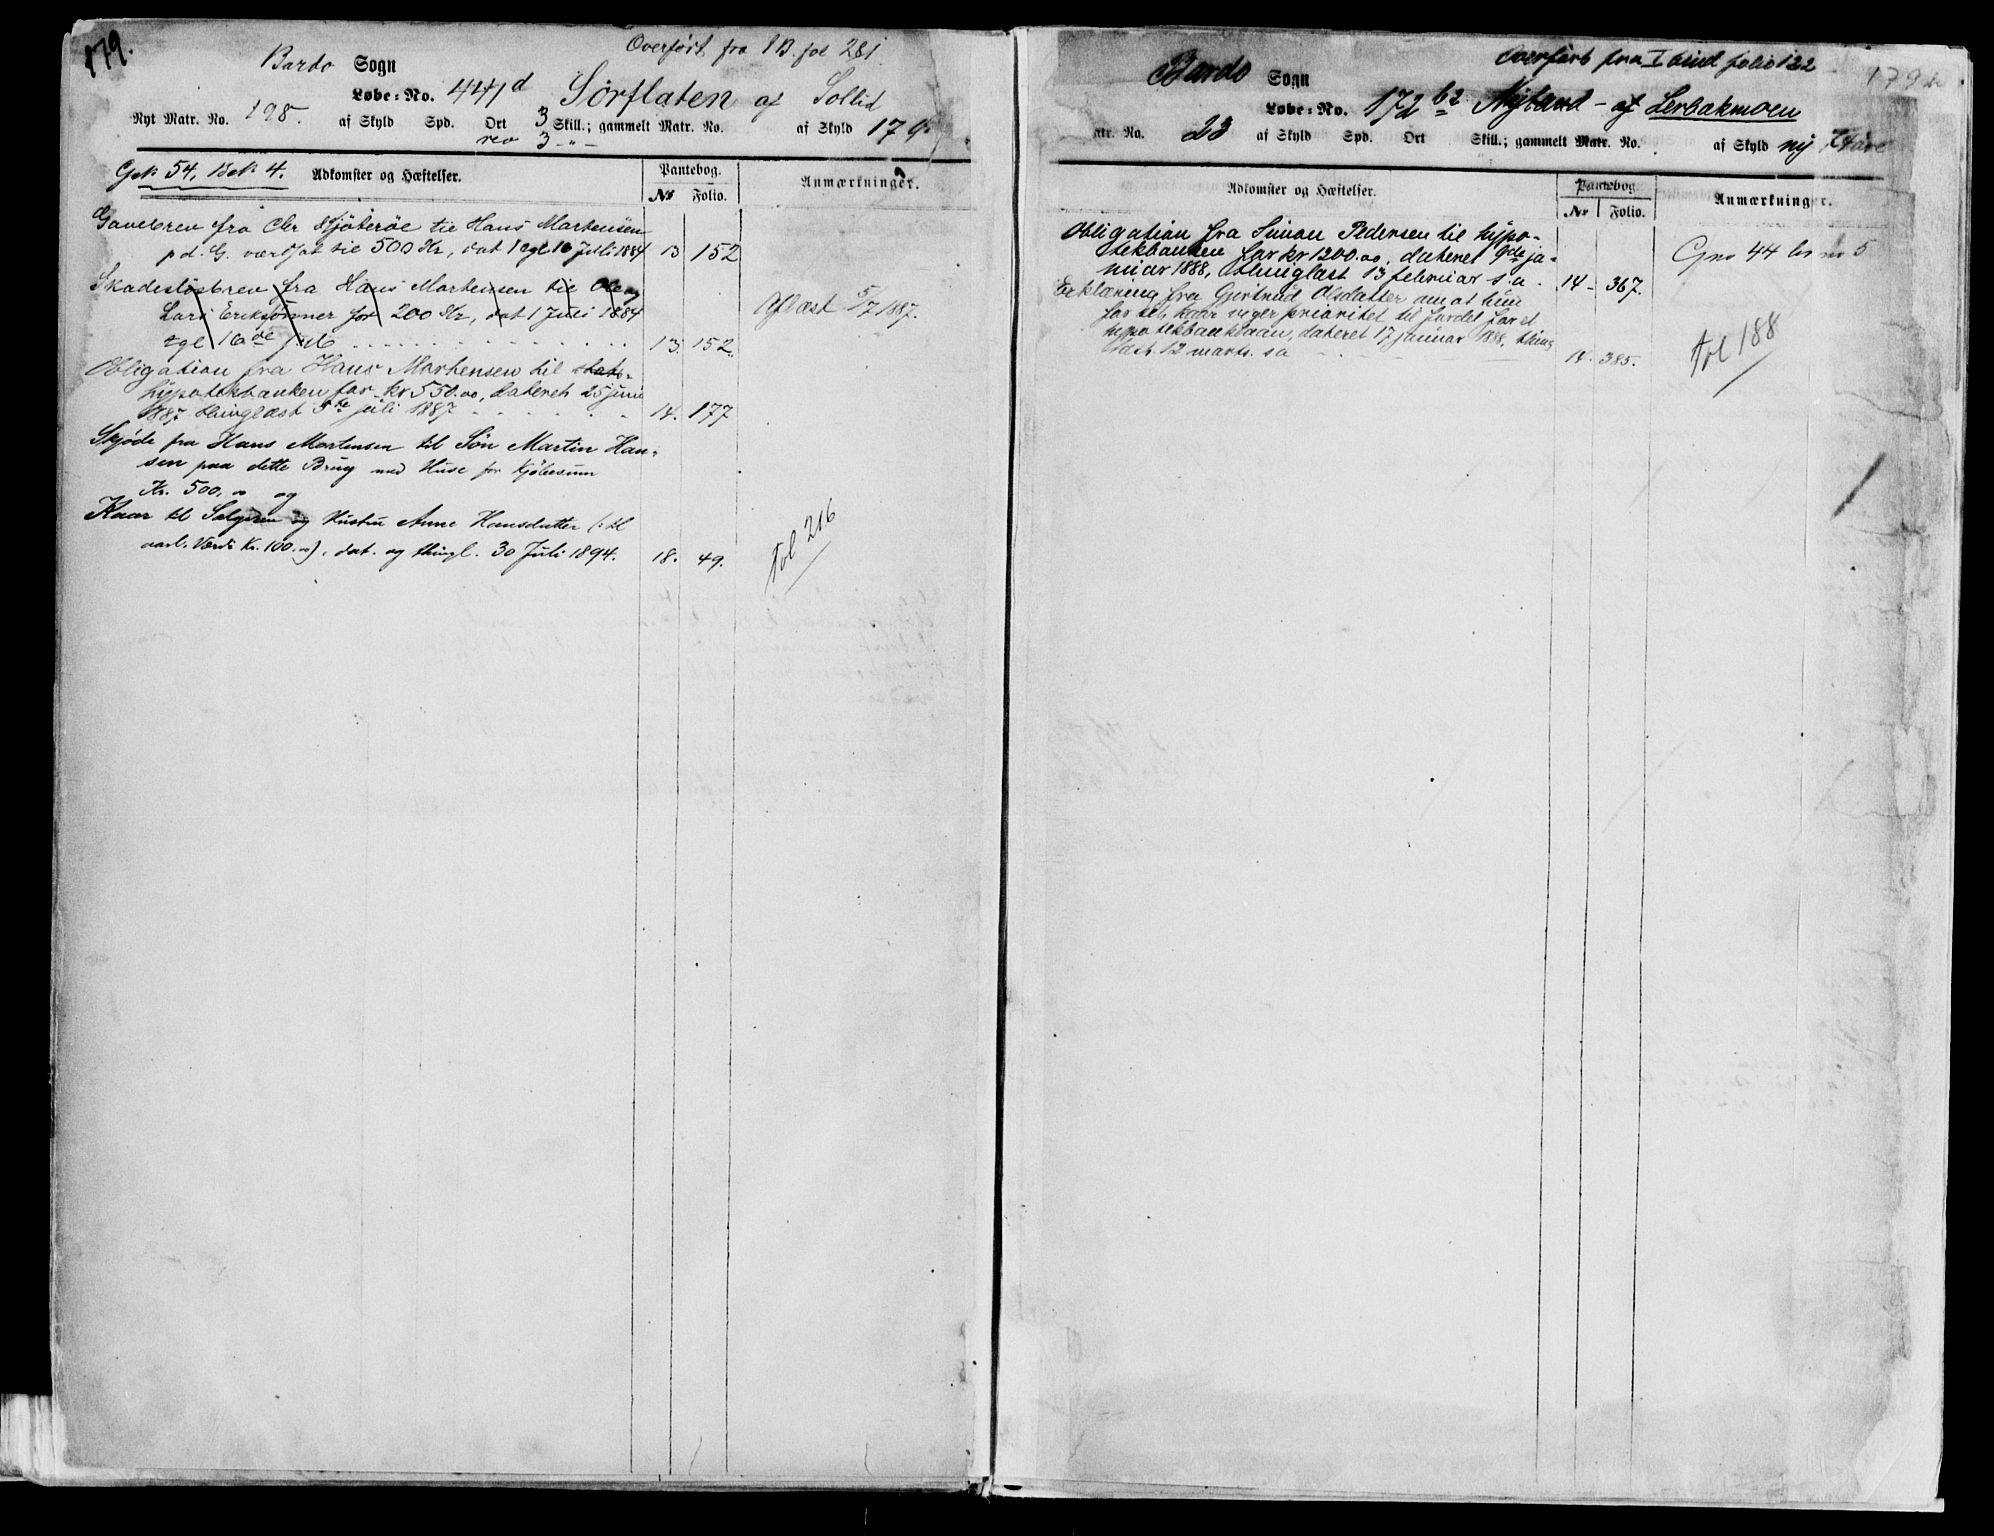 179.
Overført fra 1 B. fol 281
Bardo Sogn
Løbe-No. 441d Sørflaten af Sollid
Nyt Matr. No. 198. af Skyld Spd. Ort 3 Skill.; gammelt Matr. No. af Skyld 179
rev 3 -"-
Gk 54, Bek 4. Adkomster og Hæftelser.
Pantebog.
No Folio.
Anmærkninger.
Gavebrev fra Chr Kjøterøe til Hans Mortensen
pd. G. værdsat til 500 Kr, dat 1 tgl 16 Juli 1884 13 152
Skadesløsbrev fra Hans Mortensen til Ole og
Lars Eriksønner for 200 Kr, dat 1 Juli 1884
tgl 16de Juli 13. 152.
Aflæst 5/7 1887.
Obligation fra Hans Mortensen til stats-
hypotekbanken for kr 550.00, dateret 25 juni
1887 thinglæst 5te juli 1887 14. 177
Skjøde fra Hans Mortensen til Søn Martin Han-
sen paa dette Brug med Huse for Kjøbesum
Kr. 500,00 og
Kaar til Selgeren og Hustru Anne Hansdatter (: til
aarl. Værdi Kr. 100.00), dat. og thingl. 30 Juli 1894. 18. 49.
Fol 216
Overført fra I bind folio 122
179b
Bardo Sogn
Løbe-No. 172 b2 Nyland - af Lerbakmoen
Matr. No. 23 af Skyld Spd. Ort Skill.; gammelt Matr. No. af Skyld ny
Adkomster og Hæftelser.
Pantebog
No Folio.
Anmærkninger.
Obligation fra Simon Pedersen til hypo-
tekbanken for kr 1200.00, dateret 9de ja-
nuar 1888, thinglæst 13 februar s.a. 14 - 367.
Gno 44 br no 5
Erklæring fra Gjertrud Olsdatter om at hun
for sit kaar viger prioritet til fordel for et
hypotekbanklaan, dateret 17 januar 1888, thing
læst 12 marts s.a 14. 385.
Fol 188